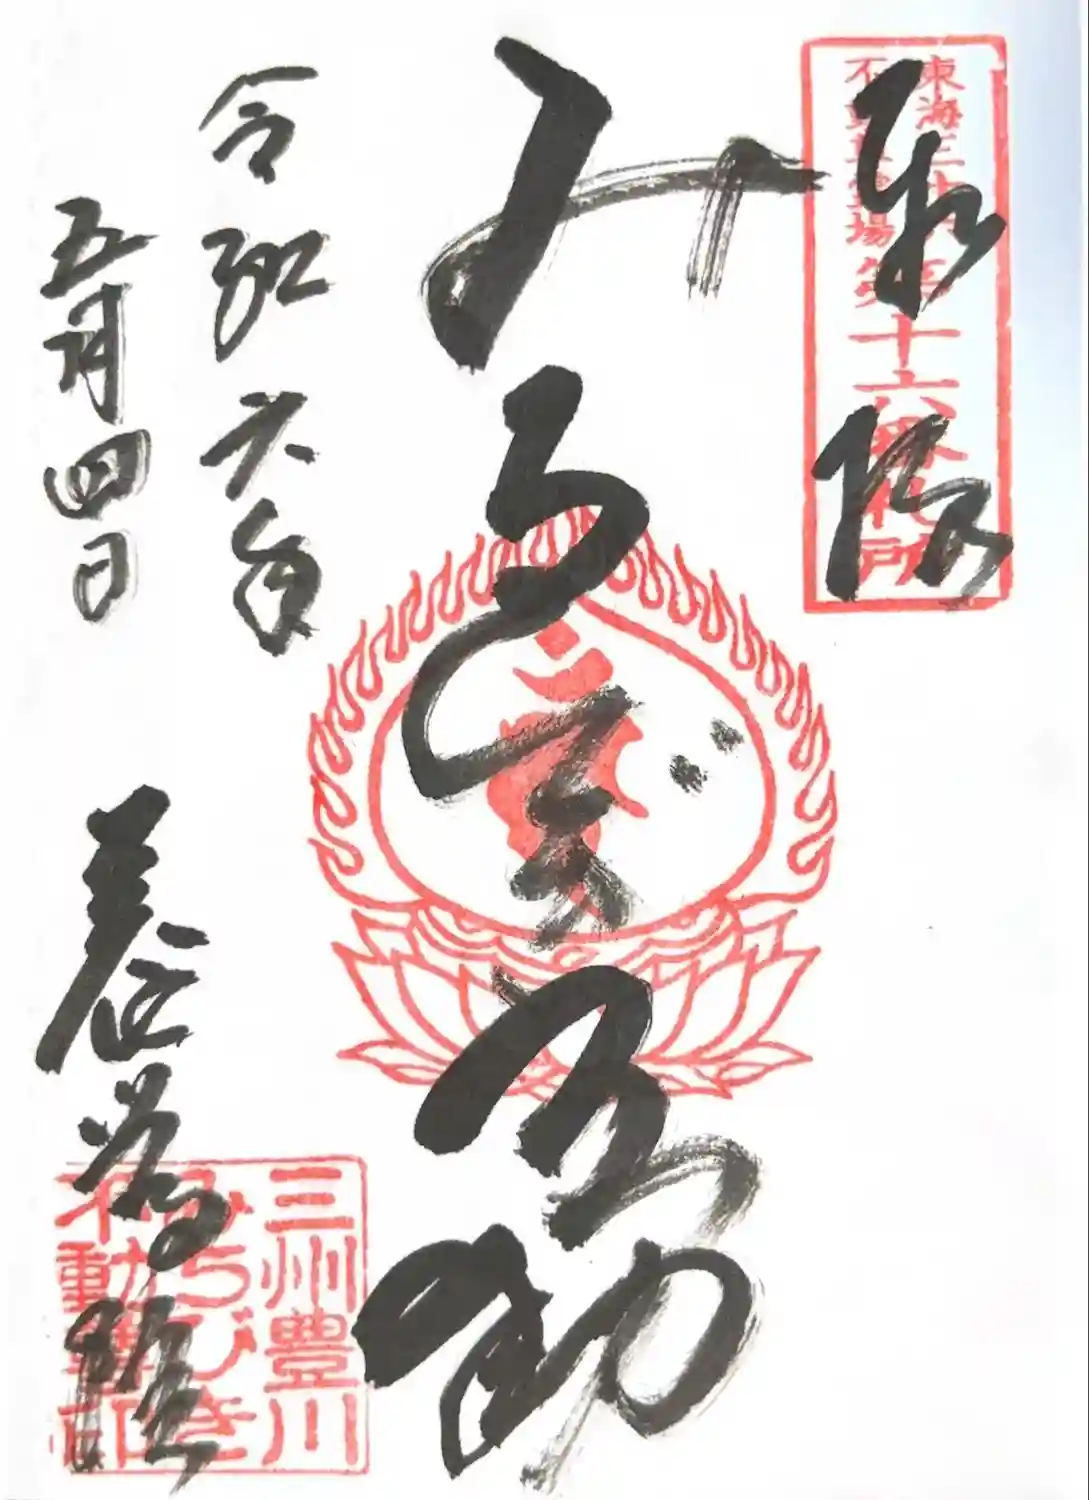 奉拝
東海三十六
不動尊霊場
第十六番札所
みちびき不動
令和六年
五月四日
三州豊川
みちびき
不動尊印